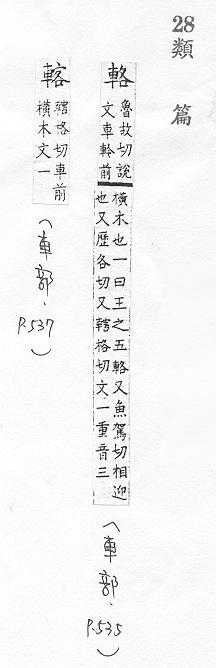 28類篇
輅魯故切說文車軨前橫木也一曰王之五輅又魚駕切相迎也又歷各切又轄格切文一重音三
(車部.P.535)
䡔轄格切車前橫木文一
(車部.P.537)